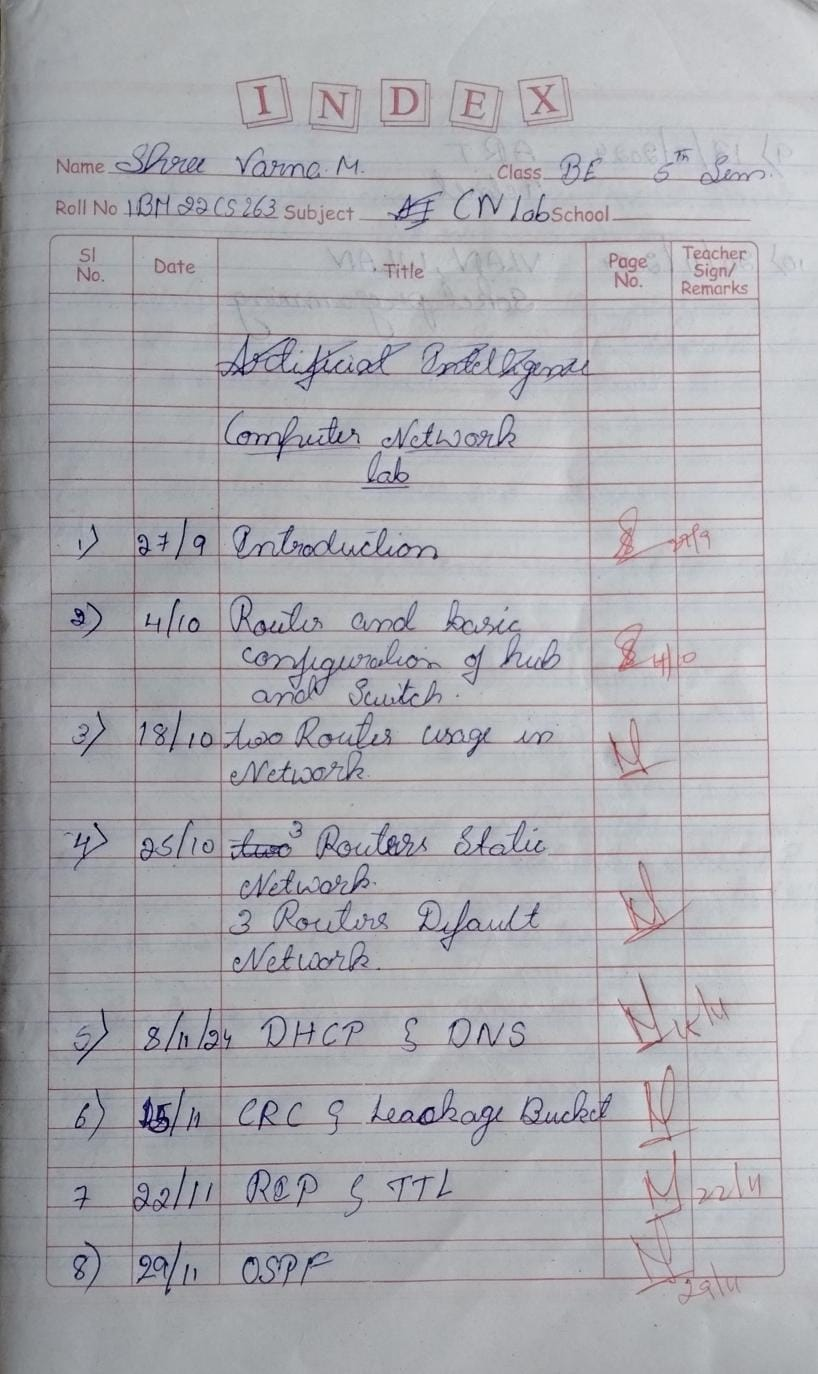 INDEX
Name Shree Varna. M. Class BE 5th Sem.
Roll No 1BM22CS263 Subject AI CN lab School
Sl No. Date Title Page No. Teacher Sign/ Remarks
Artificial Intelligence
Computer Network
lab
1) 27/9 Introduction 27/9
2) 4/10 Router and basic
configuration of hub 4/10
and Switch.
3) 18/10 two Router usage in
Network.
4) 25/10 two 3 Routers Static
Network.
3 Routers Default
Network.
5) 8/11/24 DHCP & DNS
6) 15/11 CRC & Leackage Bucket
7 22/11 RIP & TTL 22/11
8) 29/11 OSPF
29/11